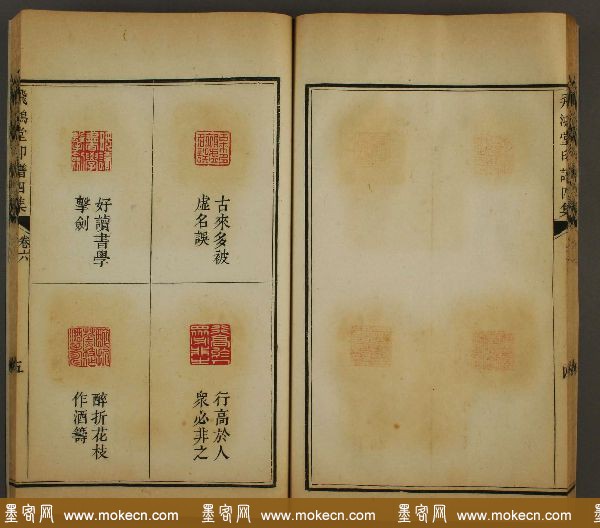 飛鴻堂印譜四集
卷六
五
古來多被
虛名誤
好讀書學
擊劍
行高於人
衆必非之
醉折花枝
作酒籌
飛鴻堂印譜四集
墨客网 www.mokecn.com
墨客网 www.mokecn.com
墨客网 www.mokecn.com
墨客网 www.mokecn.com